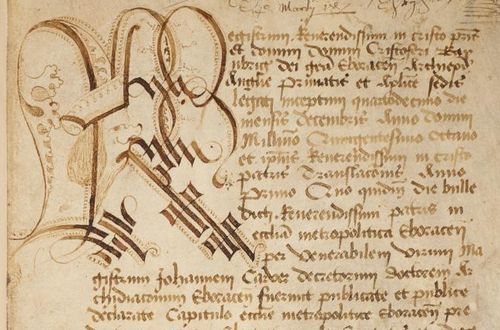 Registrum Reverendissimi in cristo pris
et domini domini Cristoferi Bay
brigge dei gra Eboracen Archiepi
Anglie Primatis et Aplice sedis
legati inceptum quartodecimo die
mensis Decembris Anno domini
Millmo Quingentesimo Octavo
et ipsius Reverendissimi in cristo
patris Translacionis Anno
Primo Quo quidm die bulle
dicti Reverendissimi patris in
ecclia metropolitica Eboracen
per Venerabilem virum Ma
gistrum Johannem Carver decretorum doctorem Ar
chidiaconum Eboracen fuerunt publicate et publice
declarate Capitulo ecclie metropolitice Eboracen pre